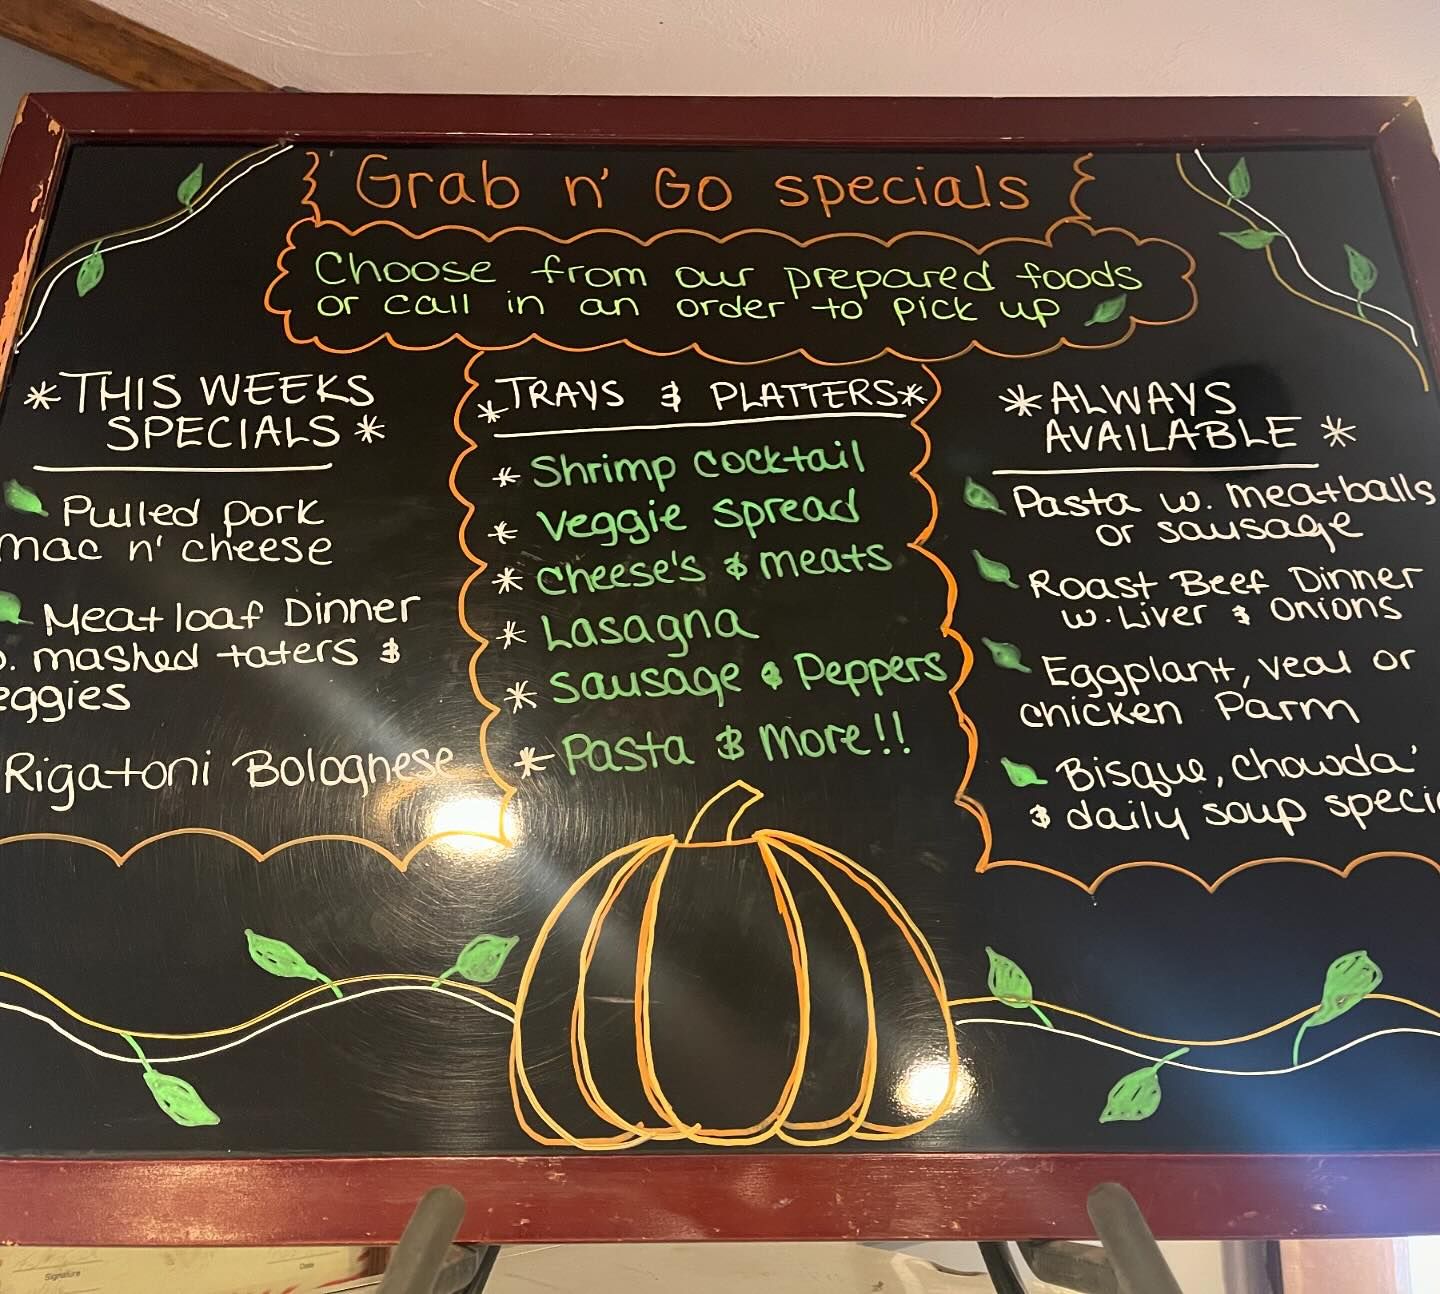 Grab n' Go specials
Choose from our prepared foods
or call in an order to pick up
*THIS WEEKS
SPECIALS*
Pulled pork
mac n' cheese
Meatloaf Dinner
. mashed taters &
eggies
Rigatoni Bolognese
*TRAYS & PLATTERS*
* Shrimp cocktail
* Veggie spread
* Cheese's & meats
* Lasagna
* Sausage & Peppers
* Pasta & More!!
*ALWAYS
AVAILABLE*
Pasta w. meatballs
or sausage
Roast Beef Dinner
w. Liver & Onions
Eggplant, veal or
chicken Parm
Bisque, Chowda'
& daily soup speci
Signature
Date